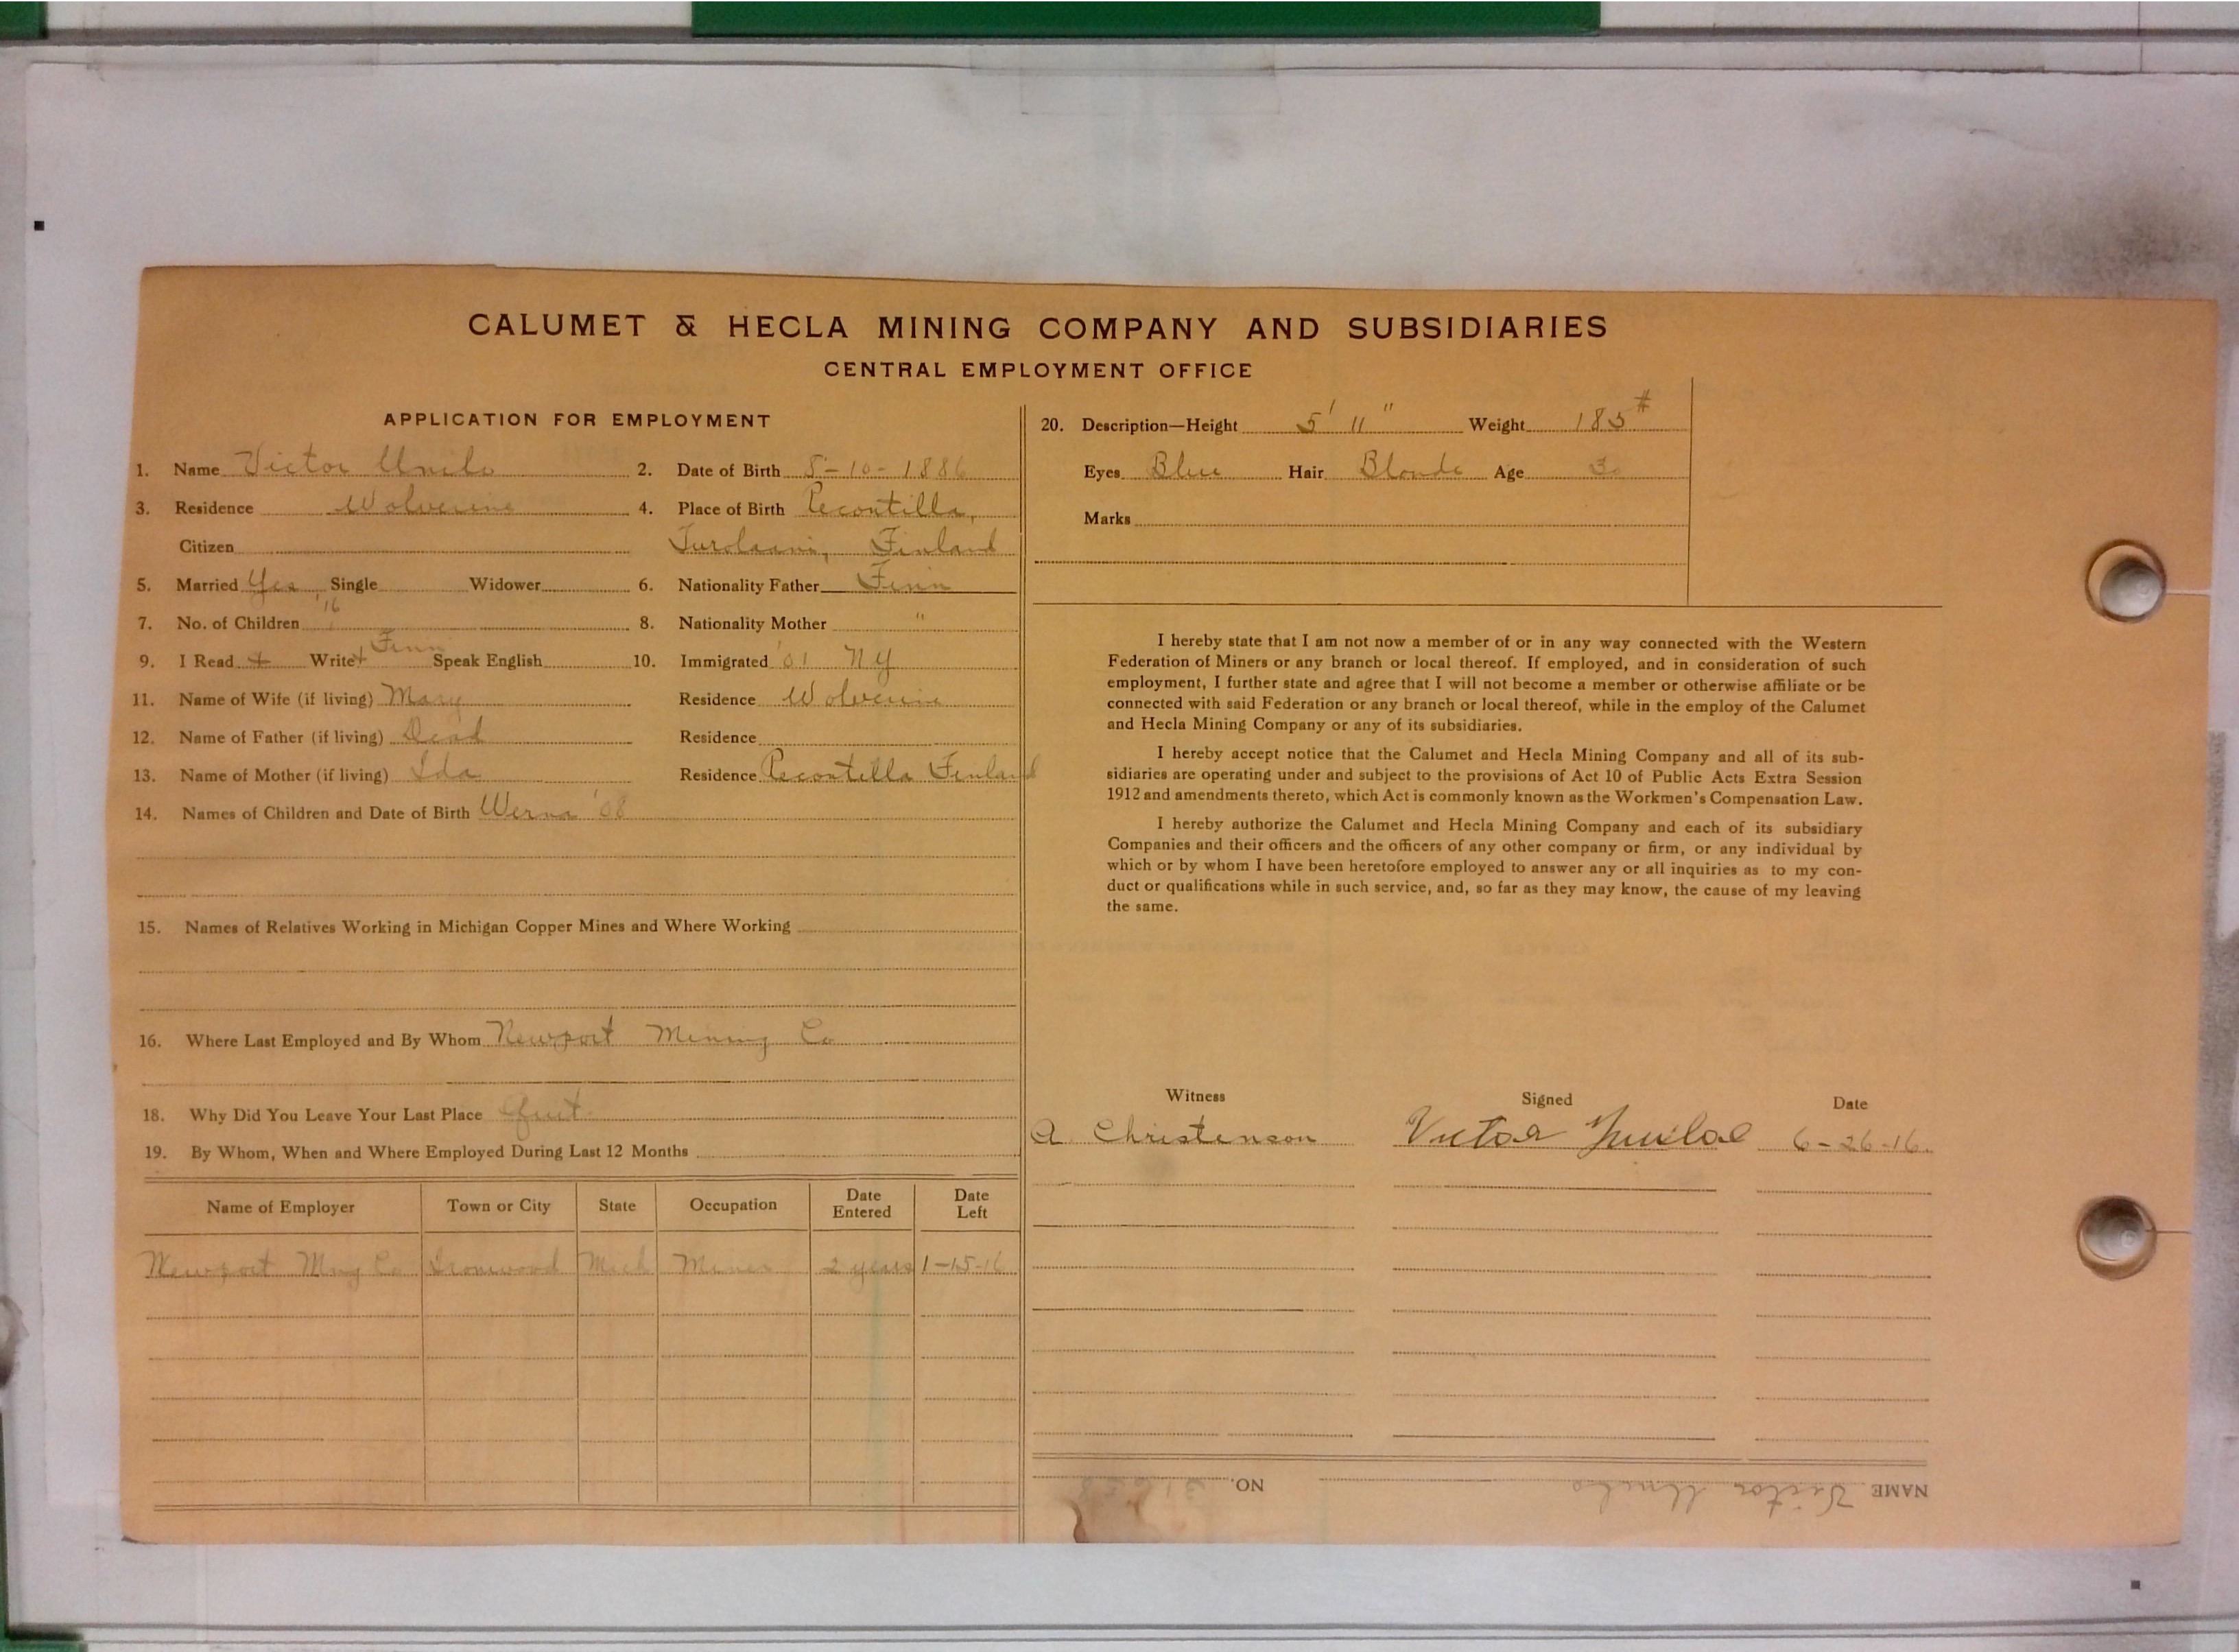 CALUMET & HECLA MINING COMPANY AND SUBSIDIARIES
CENTRAL EMPLOYMENT OFFICE
APPLICATION FOR EMPLOYMENT
1. Name Victor 2. Date of Birth 8-10-1886
3. Residence Wolverine 4. Place of Birth Pecontilla,
Citizen Finland
5. Married Yes Single Widower 6. Nationality Father Finn
'16
7. No. of Children 1 8. Nationality Mother "
Finn
9. I Read + Write + Speak English 10. Immigrated '01 NY
11. Name of Wife (if living) Mary Residence Wolverine
12. Name of Father (if living) Dead Residence
13. Name of Mother (if living) Ida Residence Pecontilla Finland
14. Names of Children and Date of Birth Werna '08
15. Names of Relatives Working in Michigan Copper Mines and Where Working
16. Where Last Employed and By Whom Newport Mining Co
18. Why Did You Leave Your Last Place Quit
19. By Whom, When and Where Employed During Last 12 Months
Name of Employer Town or City State Occupation Date Entered Date Left
Newport Mng Co Ironwood Mich Miner 2 years 1-15-16
20. Description—Height 5' 11" Weight 185#
Eyes Blue Hair Blonde Age 30
Marks
I hereby state that I am not now a member of or in any way connected with the Western
Federation of Miners or any branch or local thereof. If employed, and in consideration of such
employment, I further state and agree that I will not become a member or otherwise affiliate or be
connected with said Federation or any branch or local thereof, while in the employ of the Calumet
and Hecla Mining Company or any of its subsidiaries.
I hereby accept notice that the Calumet and Hecla Mining Company and all of its sub-
sidiaries are operating under and subject to the provisions of Act 10 of Public Acts Extra Session
1912 and amendments thereto, which Act is commonly known as the Workmen's Compensation Law.
I hereby authorize the Calumet and Hecla Mining Company and each of its subsidiary
Companies and their officers and the officers of any other company or firm, or any individual by
which or by whom I have been heretofore employed to answer any or all inquiries as to my con-
duct or qualifications while in such service, and, so far as they may know, the cause of my leaving
the same.
Witness Signed Date
A Christenson Victor 6-26-16.
NAME Victor NO.